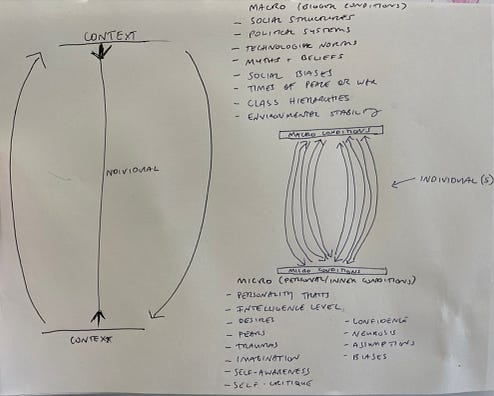 CONTEXT
INDIVIDUAL
CONTEXT
MACRO (BIGGER CONDITIONS)
- SOCIAL STRUCTURES
- POLITICAL SYSTEMS
- TECHNOLOGICAL NORMS
- MYTHS + BELIEFS
- SOCIAL BIASES
- TIMES OF PEACE OR WAR
- CLASS HIERARCHIES
- ENVIRONMENTAL STABILITY
MACRO CONDITIONS
INDIVIDUAL(S)
MICRO CONDITIONS
MICRO (PERSONAL/INNER CONDITIONS)
- PERSONALITY TRAITS
- INTELLIGENCE LEVEL
- DESIRES
- FEARS
- TRAUMAS
- IMAGINATION
- SELF-AWARENESS
- SELF-CRITIQUE
- CONFIDENCE
- NEUROSIS
- ASSUMPTIONS
- BIASES